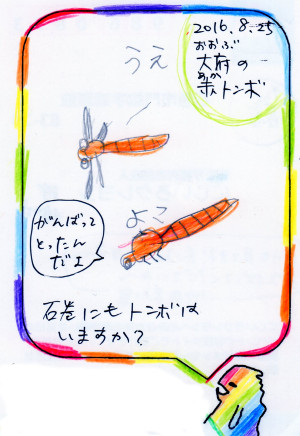 2016.8.25
おおぶ
大府の
あか
赤トンボ
うえ
よこ
がんばって
とったん
だよ
石巻にもトンボは
いますか?